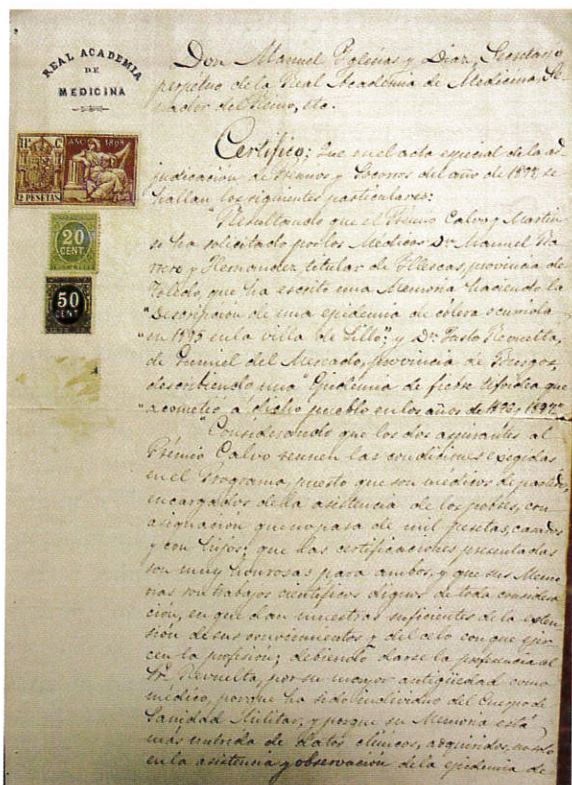 REAL ACADEMIA
DE
MEDICINA
11ª C.
AÑO 1898
2 PESETAS
20
CENT.
50
CENT.
Don Manuel Iglesias y Diaz, Secretario
perpétuo de la Real Academia de Medicina, Se-
nador del Reino, etc.
Certifico: Que en el acta especial de la ad-
judicacion de Premios y Socorros del año de 1897, se
hallan los siguientes particulares:
"Resultando que el Premio Calvo y Martin
se ha solicitado por los Médicos Dn. Manuel
y Hernandez, titular de Illescas, provincia de
Toledo, que ha escrito una Memoria haciendo la
"Descripcion de una epidemia de cólera ocurrida
"en en la villa de Lillo"; y Dn. Fasto Revuelta,
de Gumiel del Mercado, provincia de Burgos,
describiendo una "Epidemia de fiebre tifoidea que
"acometió á dicho pueblo en los años de
"Considerando que los dos aspirantes al
Prémio Calvo reunen las condiciones exigidas
en el Programa, puesto que son médicos de partido,
encargados de la asistencia de los pobres, con
asignacion que no pasa de mil pesetas, casados
y con hijos; que las certificaciones presentadas
son muy honrosas para ambos, y que sus Memo-
rias son trabajos científicos dignos de toda considera
ción, en que dan muestras suficientes de la exten-
sión de sus conocimientos y del celo con que ejer-
cen la profesión; debiendo darse la preferencia al
Sr. Revuelta, por su mayor antigüedad como
médico, porque ha sido individuo del Cuerpo de
Sanidad Militar, y porque su Memoria está
más nutrida de datos clínicos, adquiridos, no solo
en la asistencia y observación de la epidemia de